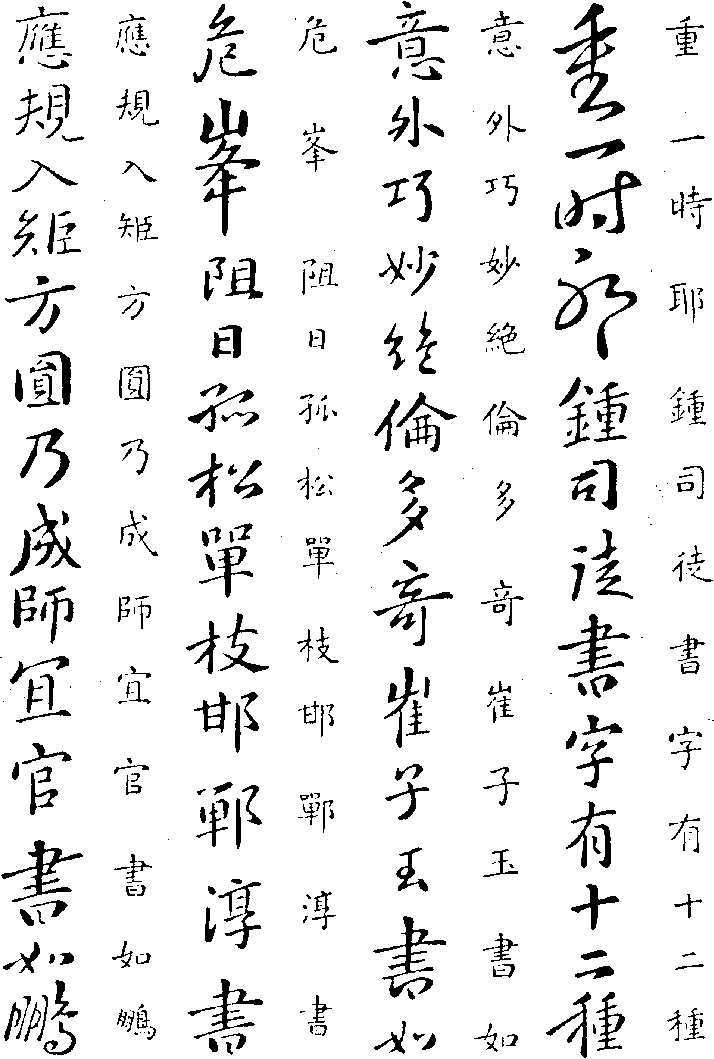 重一時耶鍾司徒書字有十二種
重一时耶鍾司徒書字有十二種
意外巧妙絶倫多奇崔子玉書如
意外巧妙絶倫多奇崔子玉書如
危峯阻日孤松單枝邯鄲淳書
危峯阻日孤松單枝邯鄲淳書
應規入矩方圓乃成師宜官書如鵬
應規入矩方圓乃成師宜官書如鵬